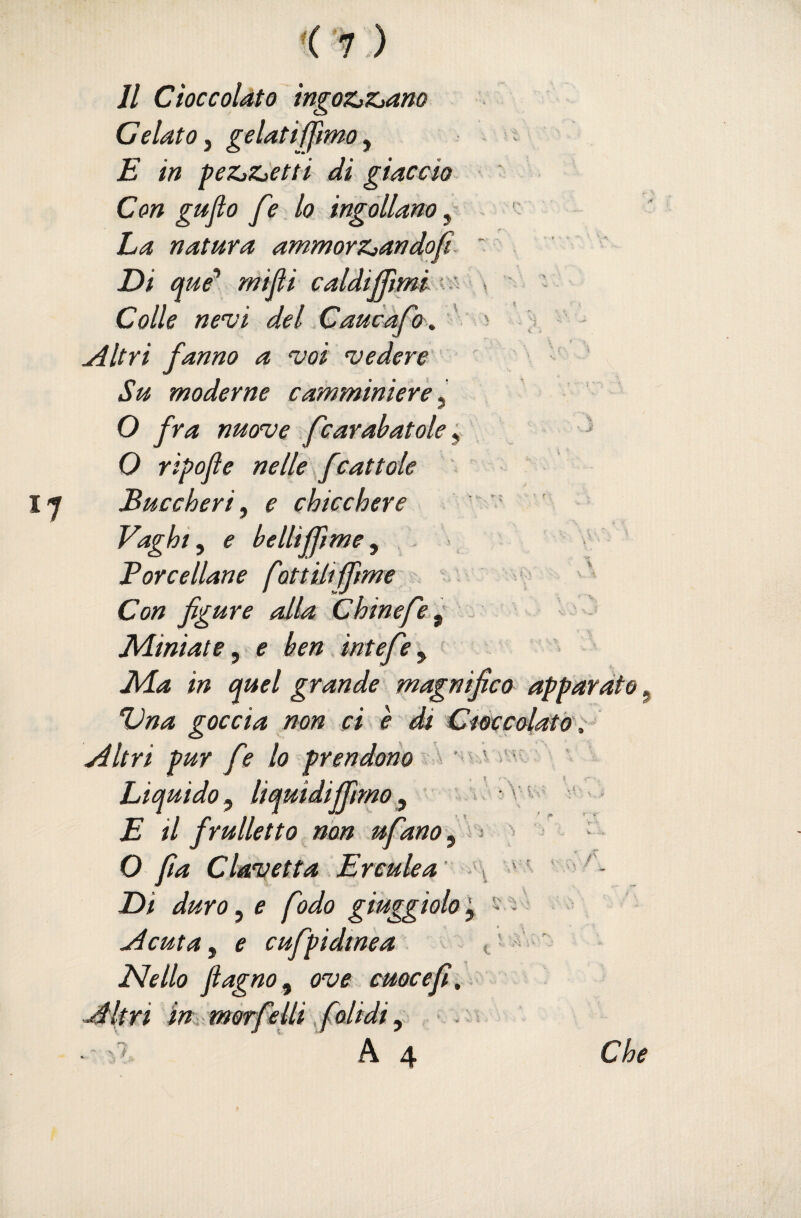 ( 7 )
Il Cioccolato ingozzano
Gelato, gelatiſſimo,
E in pezzetti di giaccio
Con guſto ſe lo ingollano,
La natura ammorzandoſi
Di que' miſti caldiſſimi
Colle nevi del Caucaſo.
Altri fanno a voi vedere
Su moderne camminiere,
O fra nuove ſcarabatole,
O ripoſte nelle ſcattole
17 Buccheri, e chicchere
Vaghi, e belliſſime,
Porcellane ſottiliſſime
Con figure alla Chineſe,
Miniate, e ben inteſe,
Ma in quel grande magnifico apparato,
Una goccia non ci è di Cioccolato.
Altri pur ſe lo prendono
Liquido, liquidiſſimo,
E il frulletto non uſano,
O ſia Clavetta Erculea
Di duro, e ſodo giuggiolo,
Acuta, e cuſpidinea
Nello ſtagno, ove cuoceſi.
Altri in morſelli ſolidi,
A 4 Che